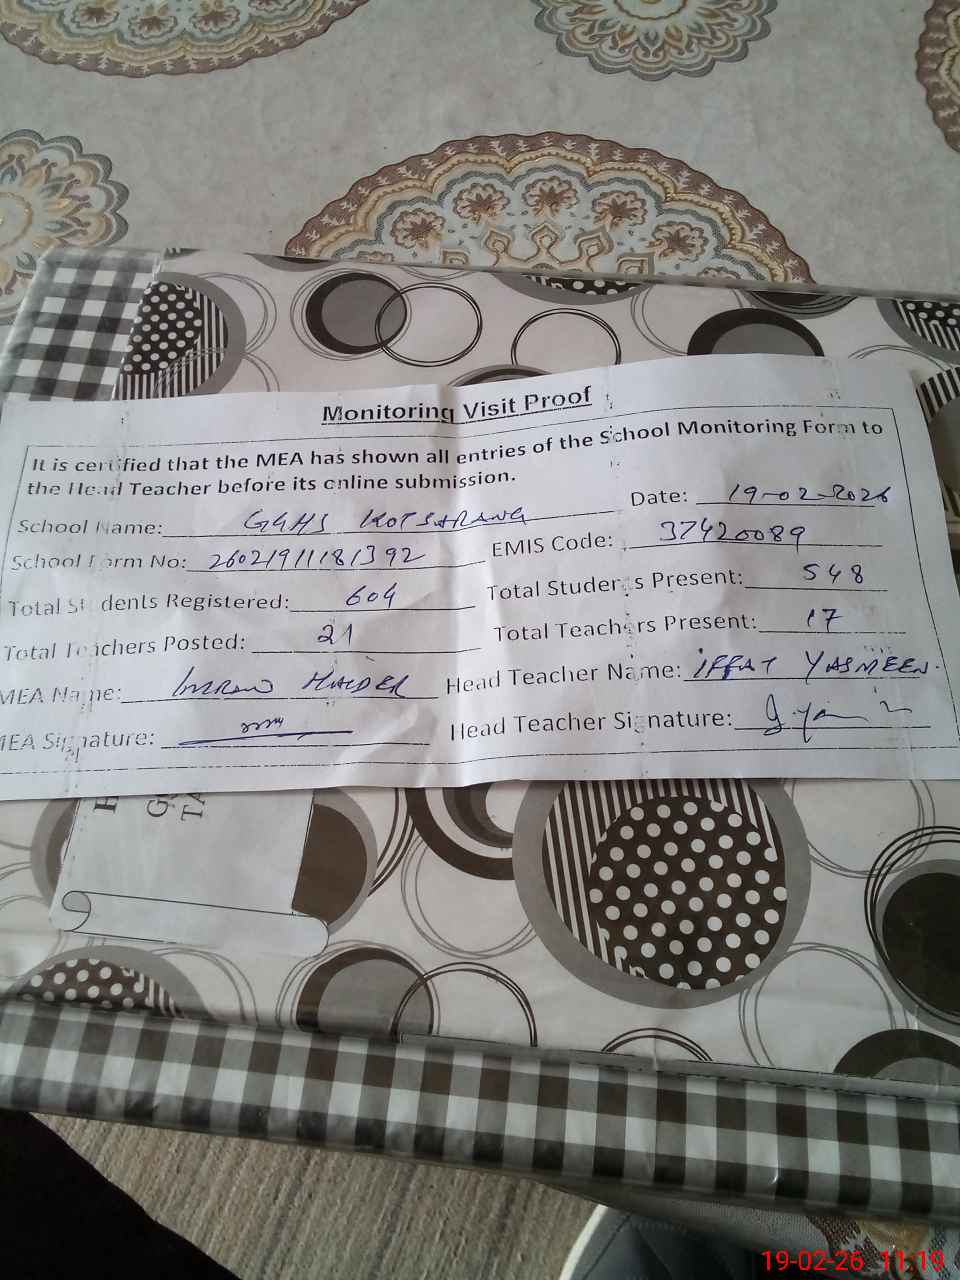 Monitoring Visit Proof
It is certified that the MEA has shown all entries of the School Monitoring Form to
the Head Teacher before its online submission.
School Name: GGHS KOT SARANG Date: 19-02-2026
School Form No: 26021911181392 EMIS Code: 37420089
Total Students Registered: 604 Total Students Present: 548
Total Teachers Posted: 21 Total Teachers Present: 17
MEA Name: IMRAN HAIDER Head Teacher Name: IFFAT YASMEEN.
MEA Signature: Head Teacher Signature:
19-02-26 11:19